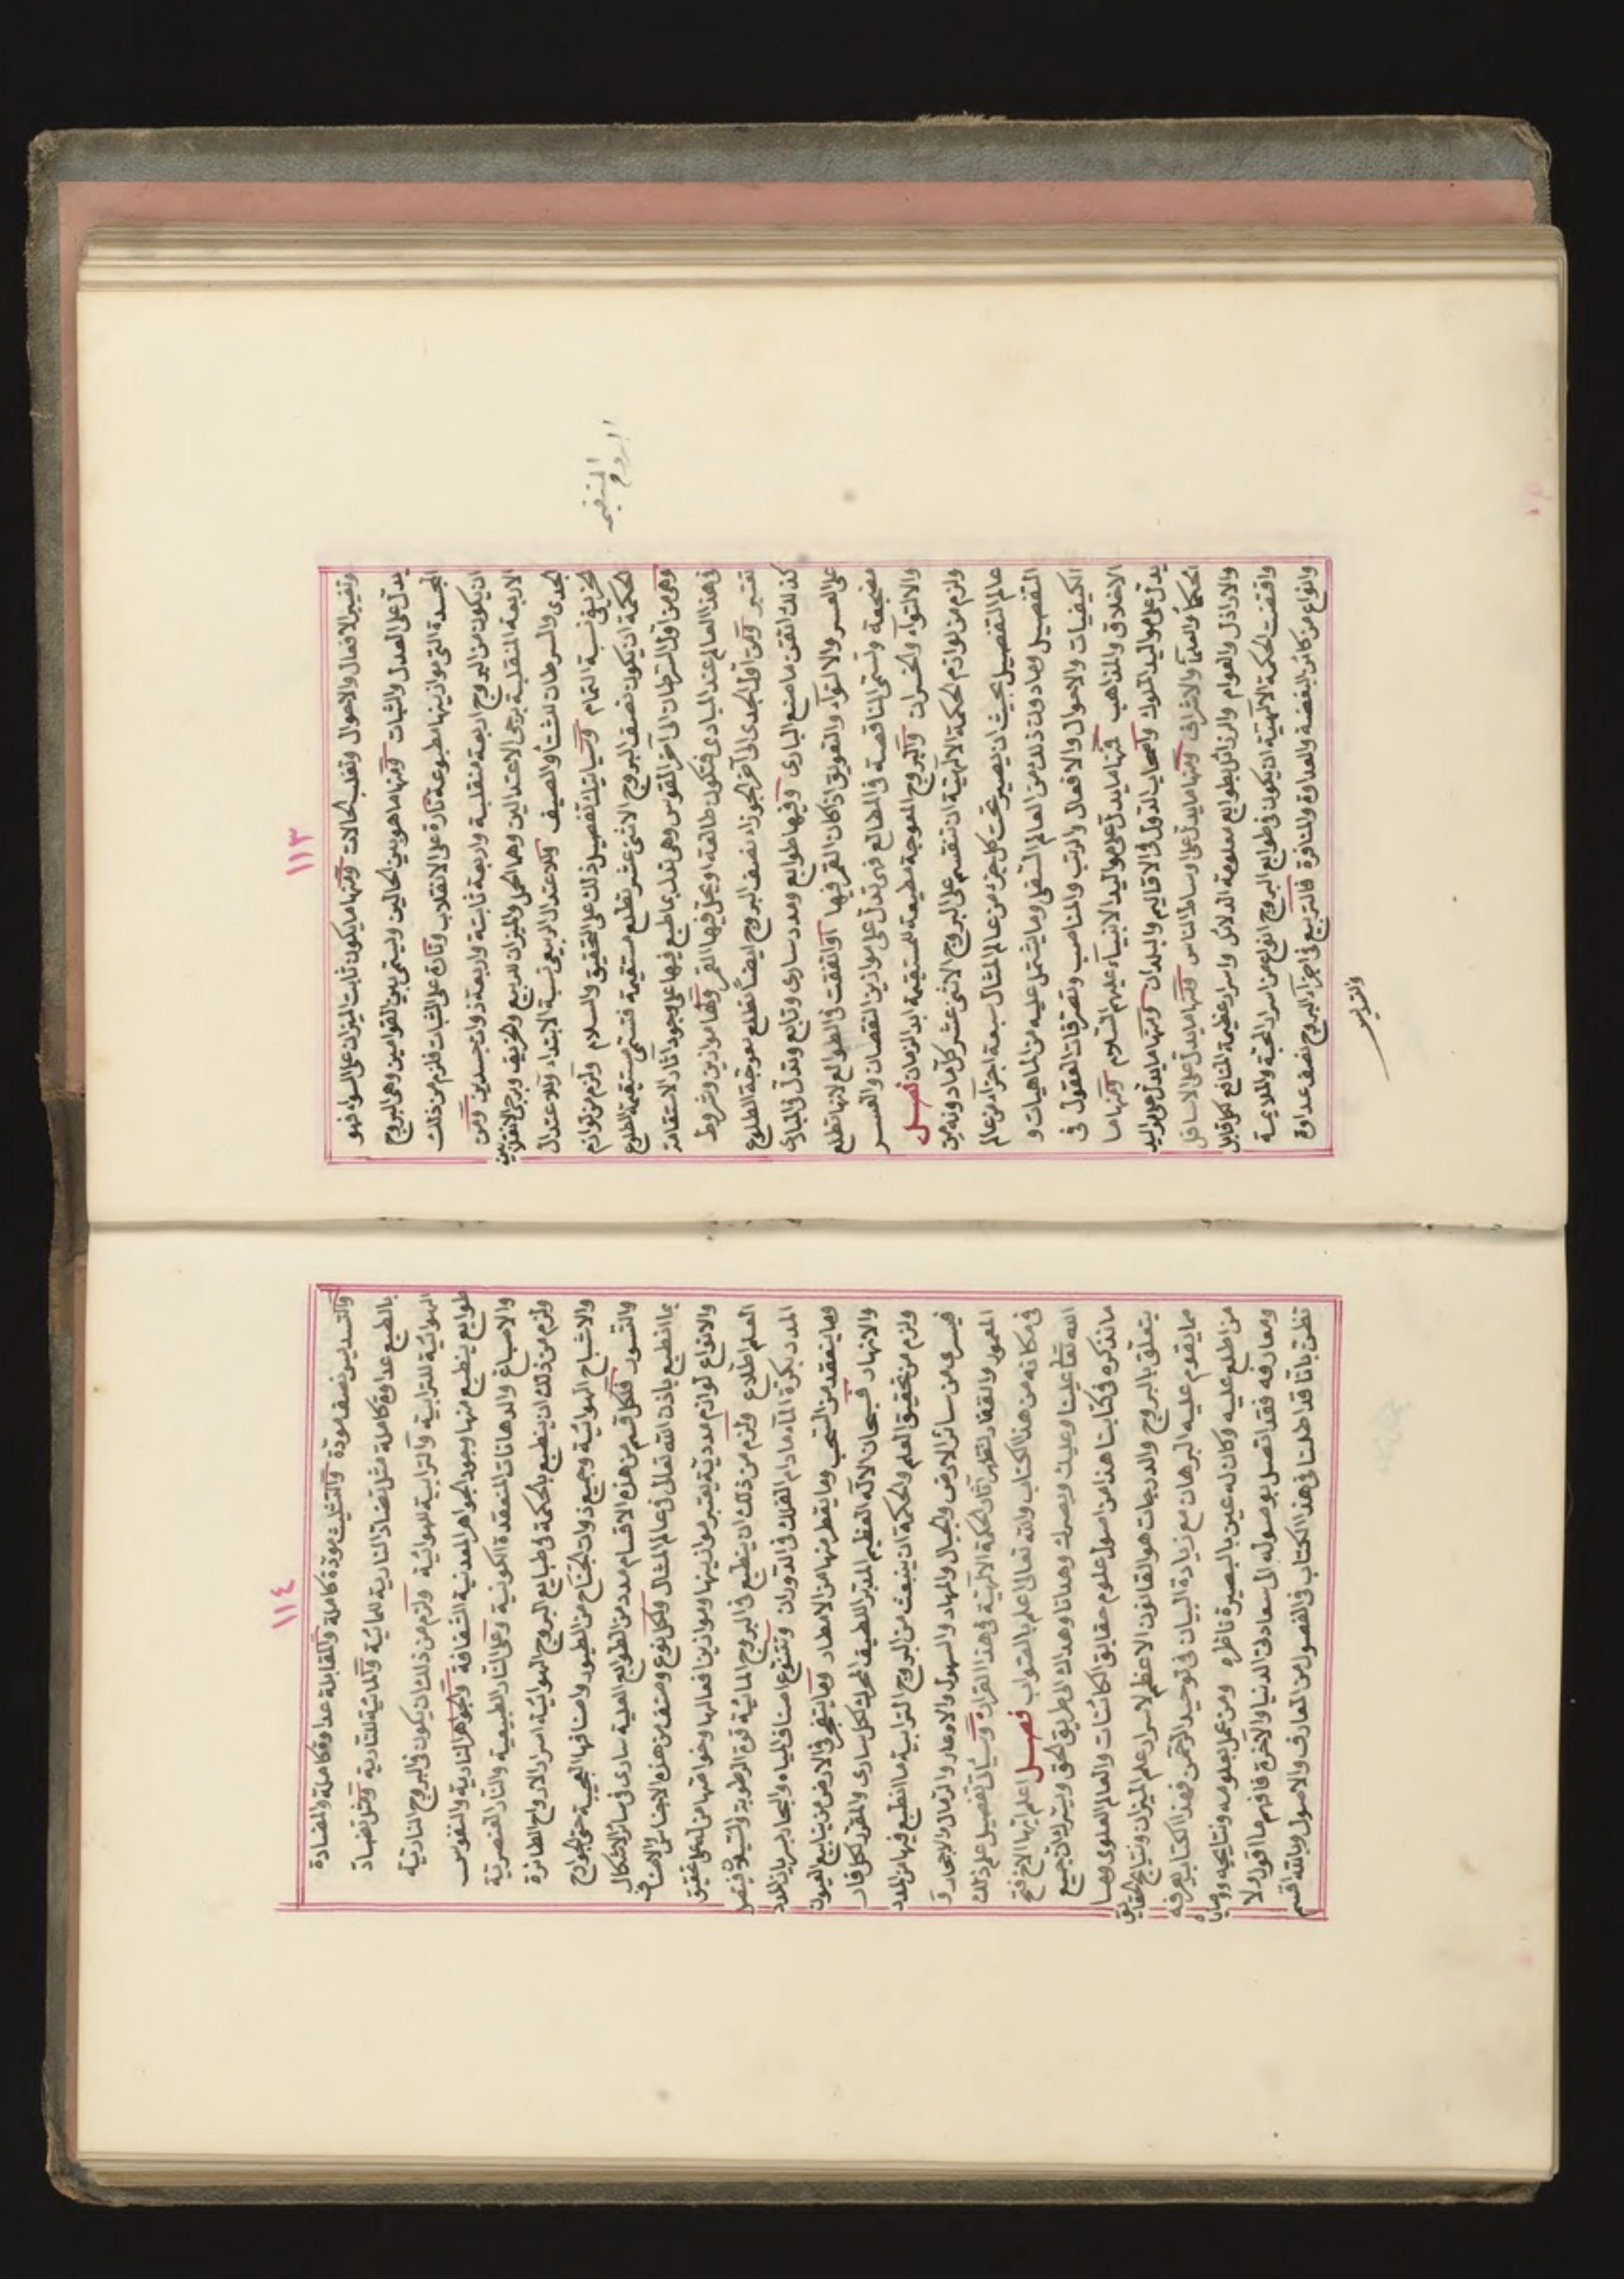 ١١٣
وتغيير الافعال والاحوال وتغلب الحالات ومنها ما يكون ثابت الميزان على السواء فهو
يدل على العدل والثبات ومنها ما هو بين الحالين ويسمى بين القوامين وهى البروج
المجسدة التى موازينها مطبوعة تارة على الانقلاب وتارة على الثبات فلزم من ذلك
ان يكون من البروج اربعة منقلبة واربعة ثابتة واربعة ذوات جسدين ومن
الاربعة المنقلبة برجى الاعتدالين وهما الحمل والميزان للربيع والخريف وبرجى الانقلابين
الجدى والسرطان للشتاء والصيف وللاعتدال الربيعى نسبة الابتداء وللاعتدال
الخريفى نسبة التمام وسيأتيك تفصيل ذلك على التحقيق والسلام ولزم من لوازم
الحكمة ان يكون نصف البروج الاثنى عشر تطلع مستقيمة فتسمى مستقيمة الطلوع
وهى من اول السرطان الى آخر القوس وهى تدل بما طبع فيها على وجود آثار الاستقامة
فى هذا العالم عند المبادى فتكون طالعة او يحل فيها القمر ولها موازين وشروط
تعتبر ومن اول الجدى الى آخر الجوزاء نصف البروج ايضاً تطلع معوجة الطلوع
كذلك اتقن ما صنع البارى وفيها طوابع ومدد سارى وتابع وتدل فى المبادى
على العسر والالتواء والتعويق اذا كان القمر فيها او اتفقت فى الطوالع لانها تطلع
مضجعة وتسمى الناقصة فى المطالع فهى تدل على موازين النقصان والعسر
والالتواء والخسران والبروج المعوجة مطيعة للمستقيمة ابد الزمان فصل
ولزم من لوازم الحكمة الالهية ان تنقسم على البروج الاثنى عشر كل ما دونه من
عالم التفصيل بحيث ان يصير تحت كل جزء من عالم المثال سبعة اجزاء من عالم
التفصيل وما دون ذلك من العالم السفلى وما يشتمل عليه من الماهيات و
الكيفيات والاحوال والافعال والرتب والمناصب وتصرفات العقول فى
الاخلاق والمذاهب فمنها ما يدل على مواليد الانبياء عليهم السلام ومنها ما
يدل على مواليد الملوك واصحاب الدول فى الاقاليم والبلدان ومنها ما يدل على مواليد
الحكماء والعلماء والاشراف ومنها ما يدل على اوساط الناس ومنها ما يدل على الاسافل
والاراذل والعوام والرذائل بطوابع معلومة الدلائل واسرار عظيمة المنافع لكل قابل
واقتضت الحكمة الالهية ان يكون فى طوابع البروج انواع من اسرار المحبة والملايمة
وانواع من كائن البغضة والعداوة والمنافرة فالتربيع فى اجزاء البروج نصف عداوة
والتسديس
البروج
المستقيمة
١١٤
والتسديس نصف مودة والتثليث مودة كاملة والمقابلة عداوة كاملة والمضادة
بالطبع عداوة كاملة مثل تضاد النارية للمائية والمائية للنارية ومثل تضاد
الهوائية للترابية والترابية للهوائية ولزم من ذلك ان يكون فى البروج النارية
طوابع ينطبع منها وجود الجواهر المعدنية الشفافة والجواهر النارية والنفوس
والاصباغ والدهانات المنعقدة الكونية وعلى النار الطبيعية والنار العنصرية
ولزم من ذلك ان ينطبع بالحكمة فى طبايع البروج الهوائية اسرار الارواح الطائرة
والاشباح الهوائية وجميع ذوات الجناح من الطيور واصنافها العجيبة حتى الجوارح
والنسور فلكل قسم من هذه الاقسام مدد من الطوابع العلية سارى فى سائر الاشكال
بما انطبع باذن الله تعالى فى عالم المثال ولكل نوع وصنف من هذه الاجناس والاصناف
والانواع لوازم مددية يعتبر موازينها وموازين افعالها وخواصها من له على تحقيق
العلم اطلاع ولزم من ذلك ان ينطبع فى البروج المائية قوة الرطوبة والسيلان فيتصل
المدد بكرة الماء ما دام الفلك فى الدوران وتتنوع اصناف المياه والبحار بسريان المدد
وما ينعقد من السحب وما يقطر منها من الامطار وما يتفجر فى الارض من ينابيع العيون
والانهار فسبحان الاله العظيم المدبر اللطيف المحرك لكل سارى والمقرر لكل قار
ولزم من تحقيق العلم والحكمة ان ينبعث من البروج الترابية ما انطبع فيها من المدد
فيسرى من سائر الارض والجبال والمهاد والسهول والاوعار والرمال والاحجار و
المعمور والقفار لتظهر آثار الحكمة الالهية فى هذا القرار وسيأتى تفصيل علم ذلك
فى مكانه من هذا الكتاب والله تعالى اعلم بالصواب فصل اعلم ايها الاخ فتح
الله تعالى علينا وعليك وبصرك وهدانا وهداك الى طريق الحق ويسرك ان جميع
ما نذكره فى كتابنا هذا من اصول علوم حقايق الكائنات والعالم العلوى ومما
يتعلق بالبروج والدرجات هو القانون الاعظم لاسرار علم الميزان ونتايج الحقايق
مما يقوم عليه البرهان مع زيادة البيان فى توحيد الرحمن فهذا الكتاب يعرفه
من اطلع عليه وكان له عين بالبصيرة ناظرة ومن عمل بعلومه ونتايجه ووصاياه
ومعارفه فقد اتصل بوصوله الى سعادتى الدنيا والاخرة فافهم ما اقول ولا
تظن بانا قد اطلنا فى هذا الكتاب فى الفصول من المعارف والاصول وبالله اقسم